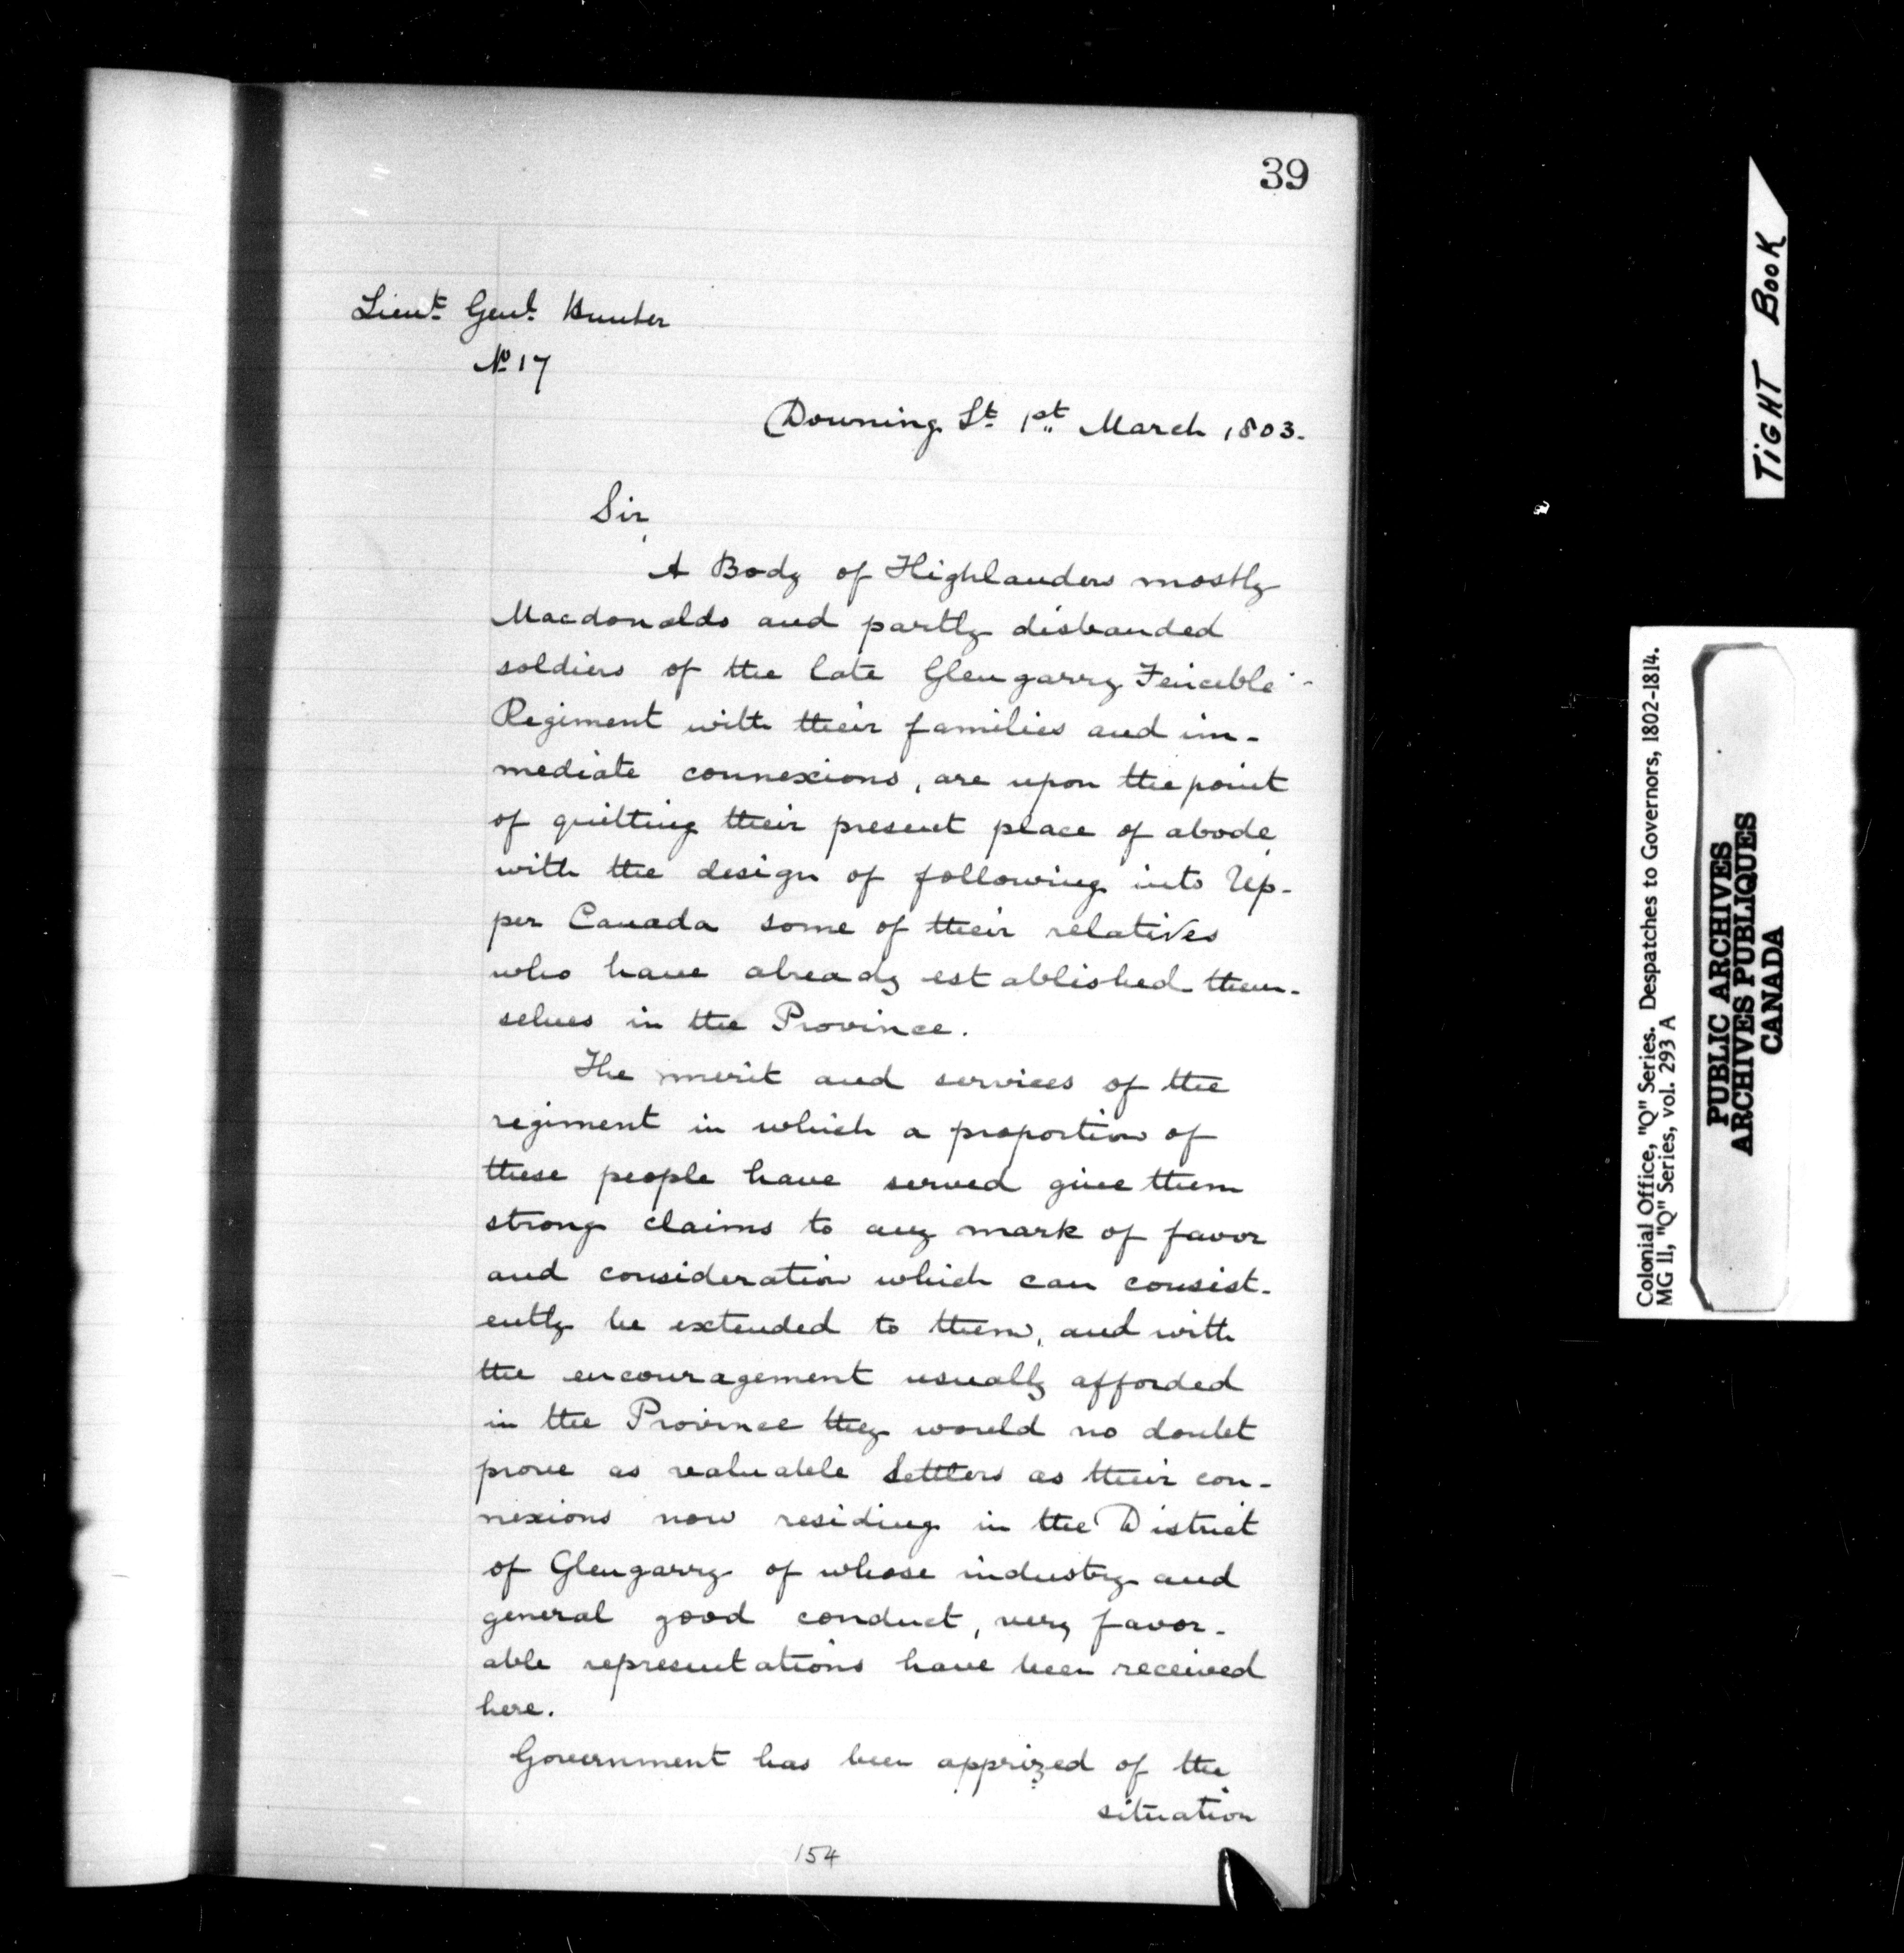 39
Lieut. Genl. Hunter
No 17
Downing St. 1st March 1803.
Sir,
A Body of Highlanders mostly
Macdonalds and partly disbanded
soldiers of the late Glengarry Fencible
Regiment with their families and im-
mediate connexions, are upon the point
of quitting their present place of abode
with the design of following into Up-
per Canada some of their relatives
who have already established them-
selves in the Province.
The merit and services of the
regiment in which a proportion of
these people have served give them
strong claims to any mark of favor
and consideration which can consist-
ently be extended to them, and with
the encouragement usually afforded
in the Province they would no doubt
prove as valuable Settlers as their con-
nexions now residing in the District
of Glengarry of whose industry and
general good conduct, very favor-
able representations have been received
here.
Government has been apprized of the
situation
154
TiGHT BooK
Colonial Office, "Q" Series. Despatches to Governors, 1802-1814.
MG 11, "Q" Series, vol. 293 A
PUBLIC ARCHIVES
ARCHIVES PUBLIQUES
CANADA